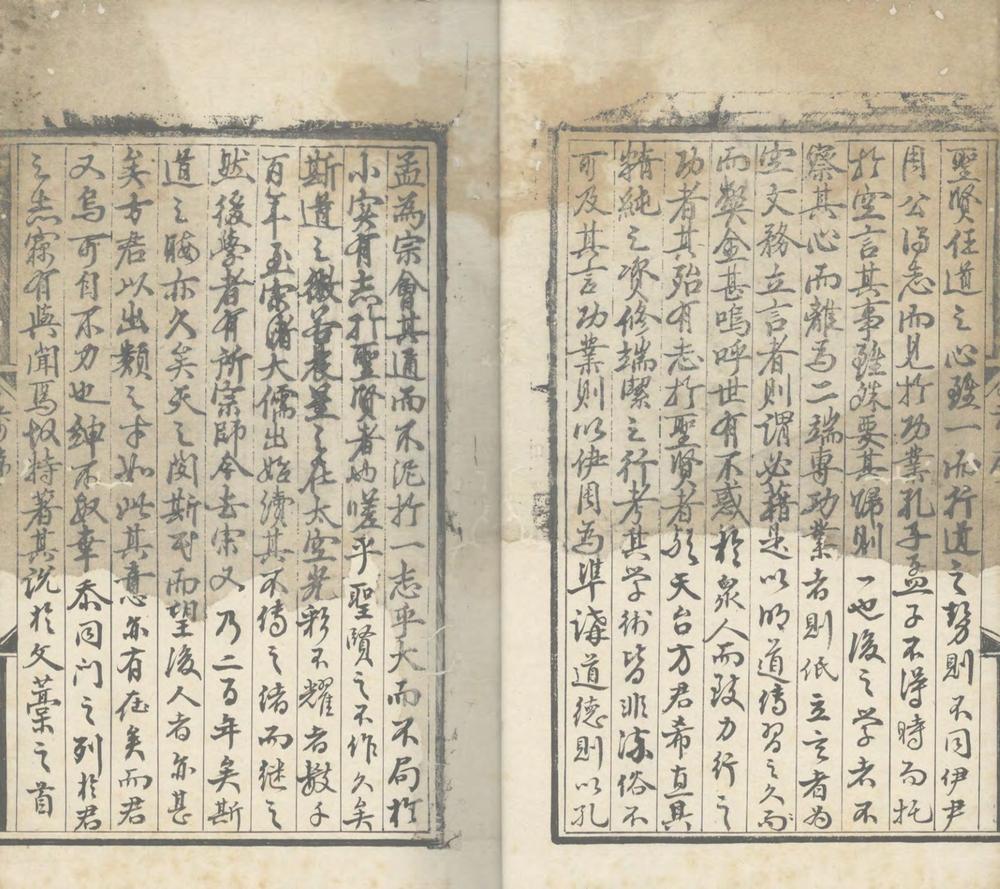 聖賢任道之心雖一而行道之勢則不同伊尹
周公得志而見於功業孔子孟子不得時而托
於空言其事雖殊要其歸則一也後之学者不
察其心而離為二端專功業者則低立言者為
空文務立言者則謂必藉是以明道傳習之久而
而弊益甚嗚呼世有不惑於衆人而致力行之
功者其殆有志於聖賢者歟天台方君希直具
精純之資修端潔之行考其学術皆非流俗不
可及其言功業則以伊周為準講道德則以孔
孟為宗會其通而不泥於一志乎大而不局於
小寔有志於聖賢者也嗟乎聖賢之不作久矣
斯道之微若衆星之在太空光彩不耀者数千
百年至宋諸大儒出始續其不傳之緒而継之
然後學者有所宗師今去宋又乃二百年矣斯
道之晦亦久矣天之閔斯民而望後人者亦甚
矣方君以出類之才如此其意亦有在矣而君
又烏可自不力也紳不敏幸忝同门之列於君
之志寔有與聞焉故特著其説於文藁之首